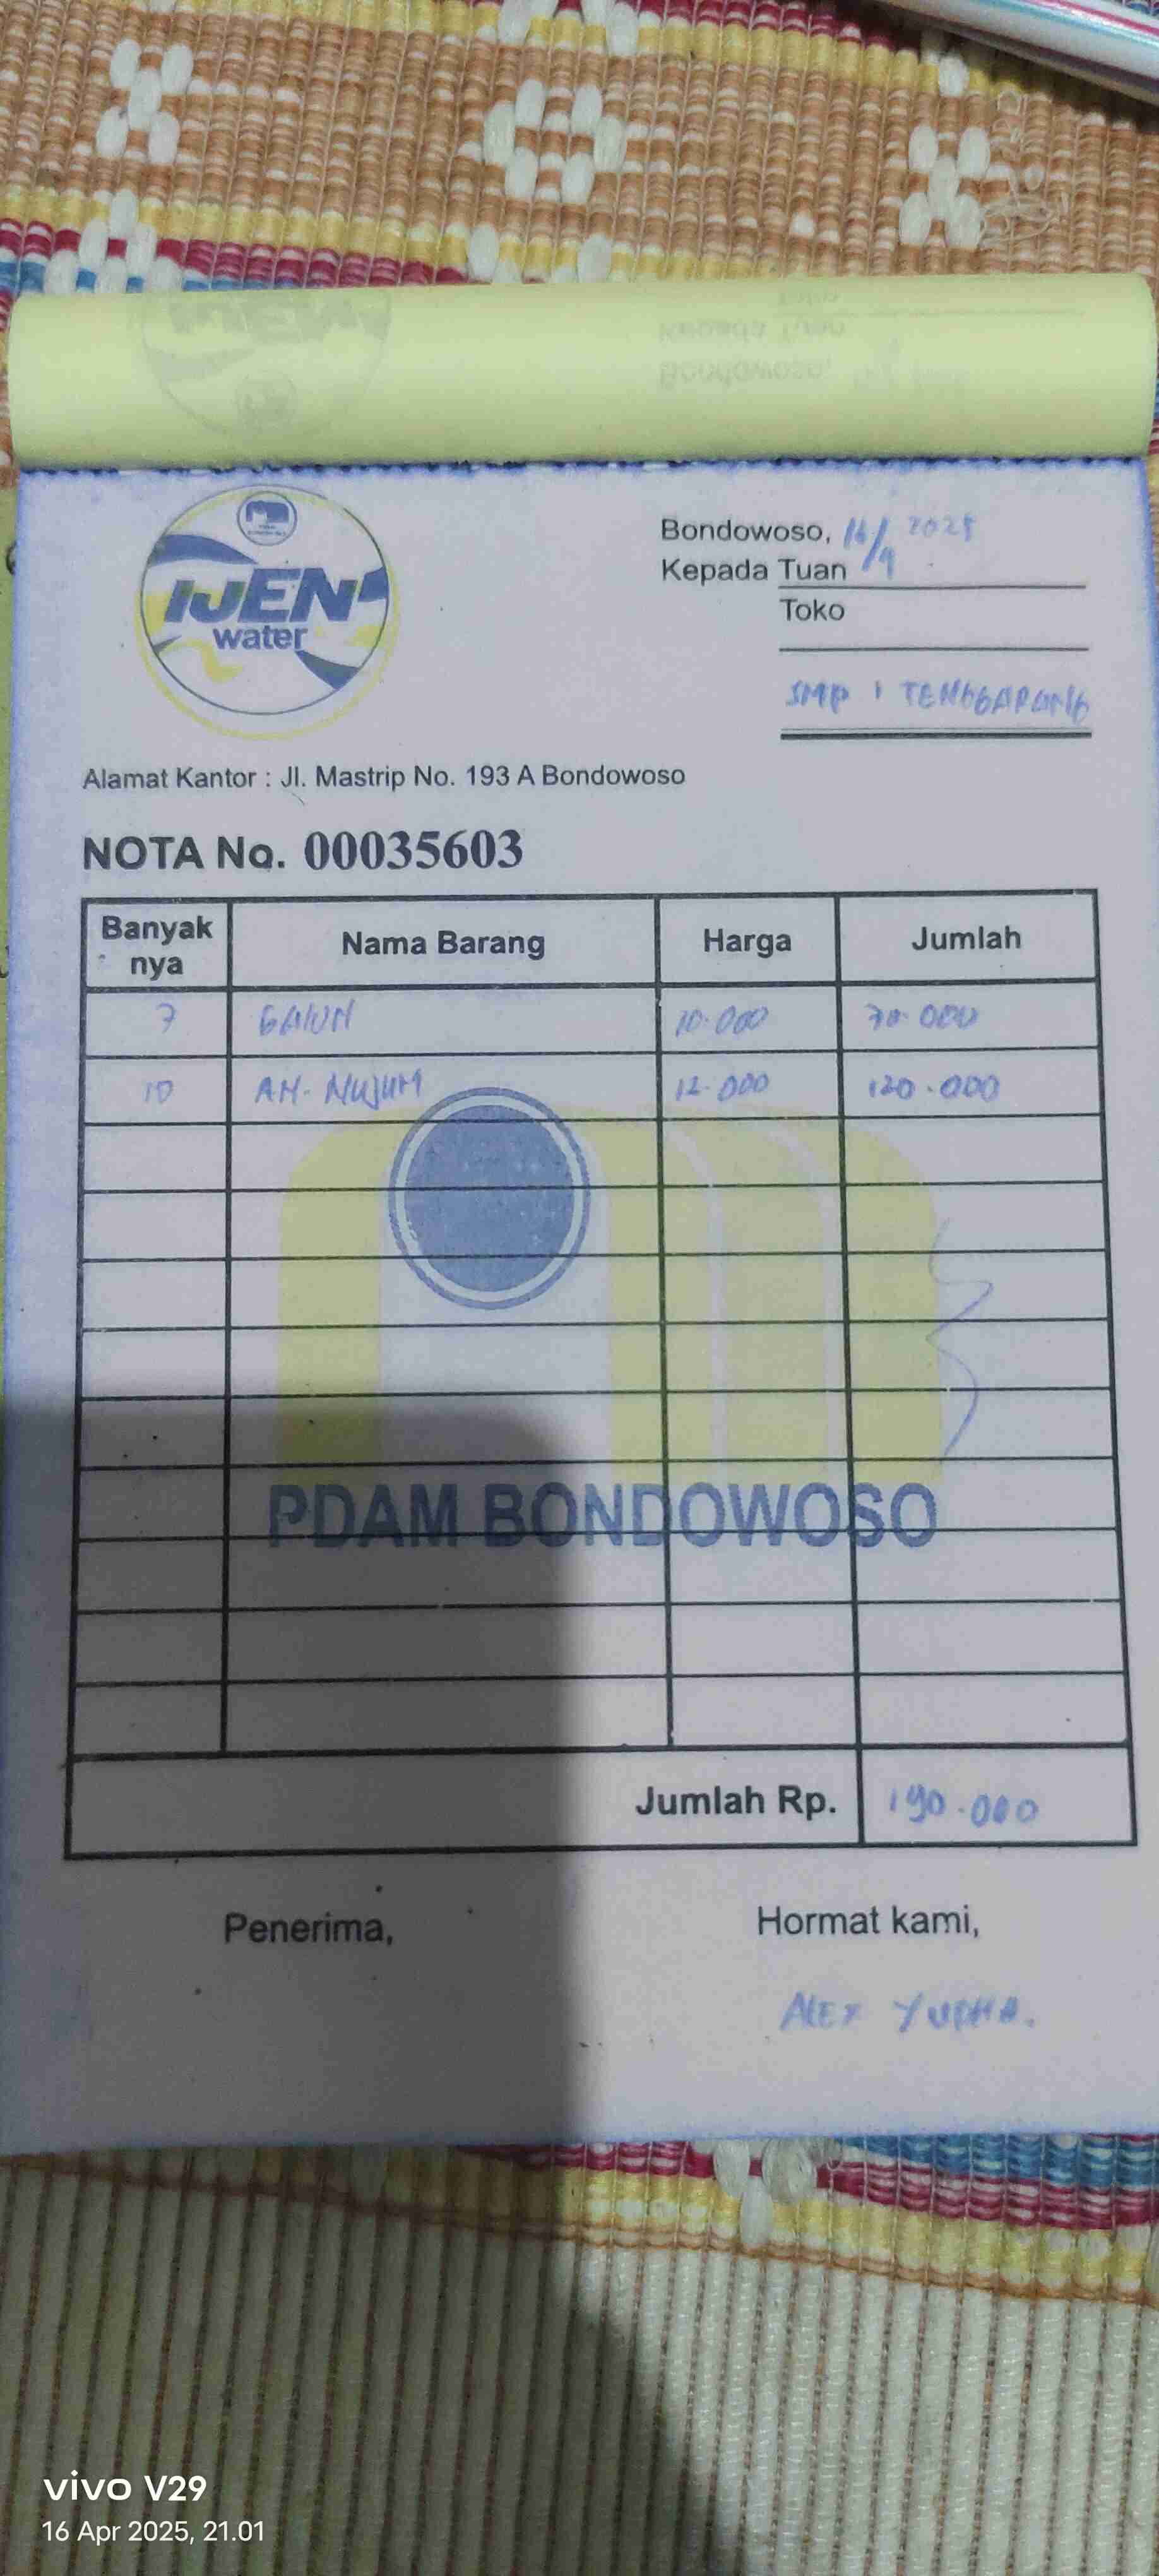 IJEN
water
Bondowoso, 16/4 2025
Kepada Tuan
Toko
SMP 1 TENGGARANG
Alamat Kantor : Jl. Mastrip No. 193 A Bondowoso
NOTA No. 00035603
Banyak nya Nama Barang Harga Jumlah
7 GALON 10.000 70.000
10 AN-NUJUM 12.000 120.000
PDAM BONDOWOSO
Jumlah Rp. 190.000
Penerima, Hormat kami,
ALEX YUDHA.
vivo V29
16 Apr 2025, 21.01